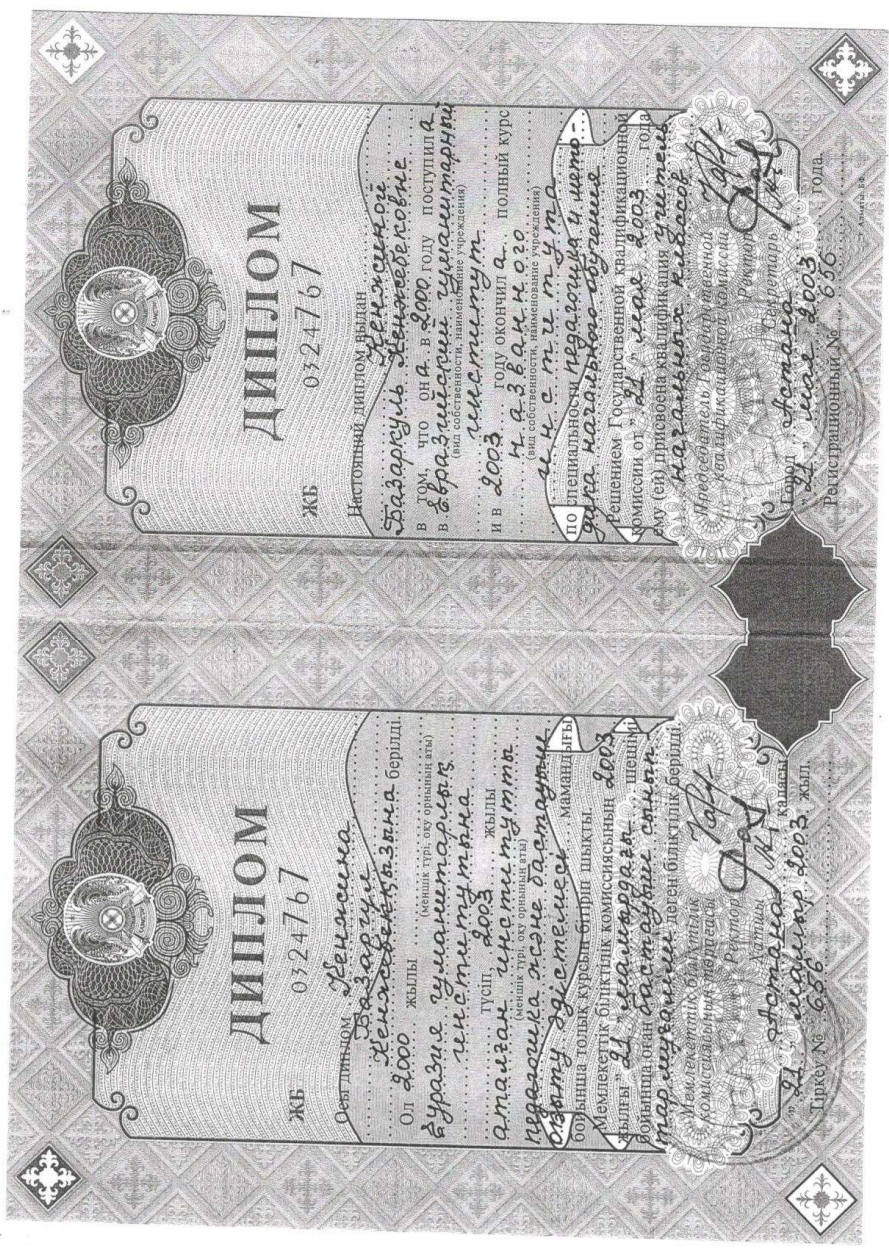 ДИПЛОМ
ЖБ 0324767
Осы диплом Кенжина
Базаргул
Кенжебекқызына берілді.
Ол 2000 жылы
(меншік түрі, оқу орнының аты)
Еуразия гуманитарлық
институтына
түсіп, 2003 жылы
аталған институтты
(меншік түрі, оқу орнының аты)
педагогика және бастауыш
оқыту әдістемесі мамандығы
бойынша толық курсын бітіріп шықты.
Мемлекеттік біліктілік комиссиясының 2003
жылғы "21" мамырдағы шешімі
бойынша оған бастауыш сынып
тар мұғалімі деген біліктілік берілді.
Мемлекеттік біліктілік
комиссиясының төрағасы
Ректор
Хатшы
Астана қаласы
"21" мамыр 2003 жыл.
Тіркеу № 656
ДИПЛОМ
ЖБ 0324767
Настоящий диплом выдан
Кенжиной
Базаркуль Кенжебековне
в том, что она в 2000 году поступила
в Евразийский гуманитарный
(вид собственности, наименование учреждения)
институт
и в 2003 году окончила полный курс
названного
(вид собственности, наименование учреждения)
института
по специальности педагогика и мето-
дика начального обучения
Решением Государственной квалификационной
комиссии от "21" мая 2003 года
ему (ей) присвоена квалификация учитель
начальных классов
Председатель Государственной
квалификационной комиссии
Ректор
Секретарь
Город Астана
"21" мая 2003 года.
Регистрационный № 656